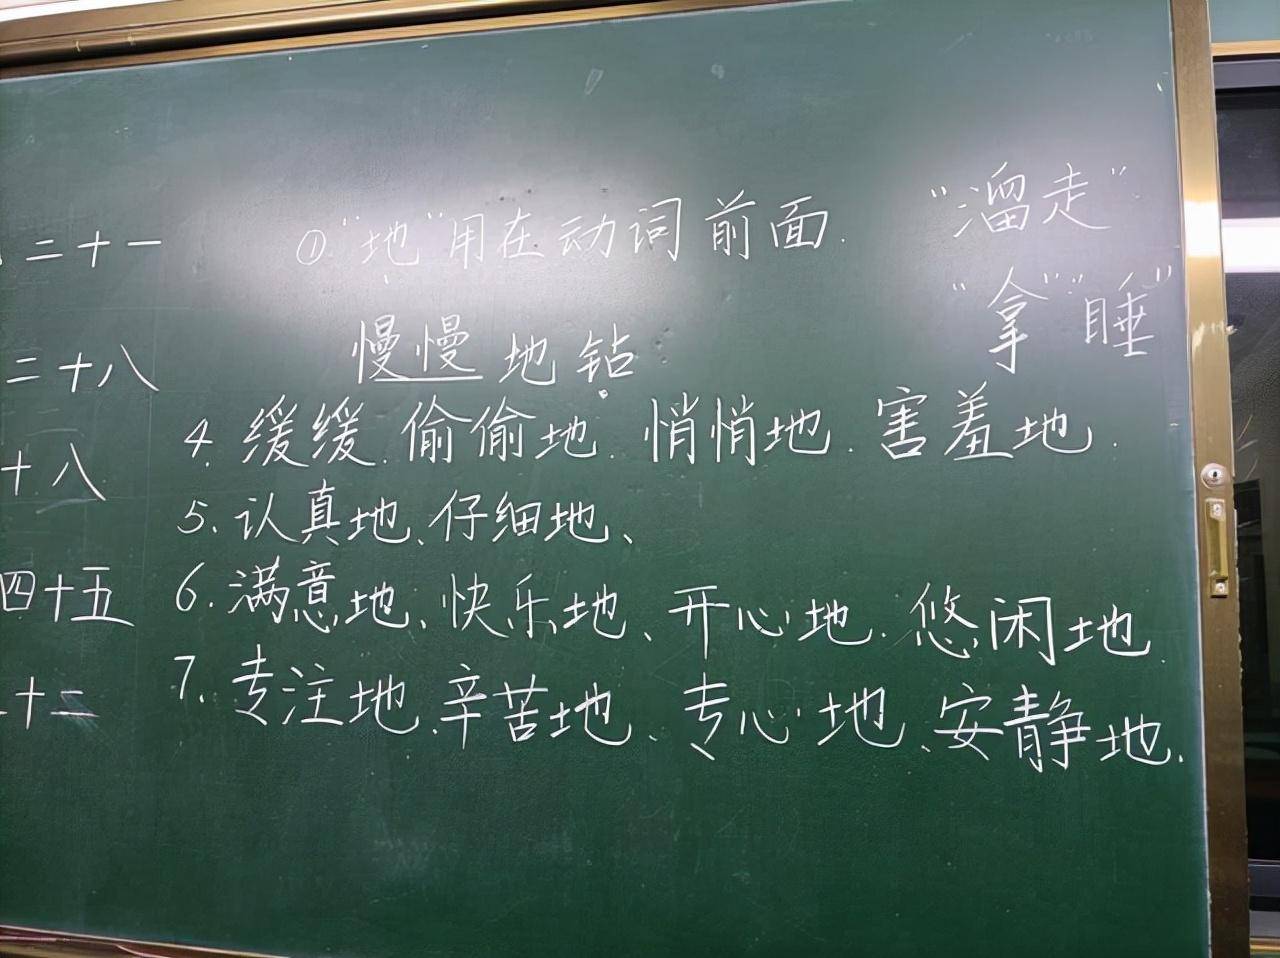 二十一
二十八
十八
四十五
十二
①“地”用在动词前面.
慢慢地钻
4. 缓缓. 偷偷地. 悄悄地. 害羞地.
5. 认真地、仔细地、
6. 满意地、快乐地、开心地. 悠闲地.
7. 专注地、辛苦地、专心地、安静地.
“溜走”
“拿”“睡”